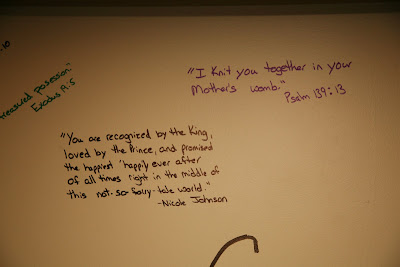 :10
treasured possession"
Exodus 19:5
"I knit you together in your
Mother's womb."
Psalm 139:13
"You are recognized by the King,
loved by the Prince, and promised
the happiest "happily ever after
of all times right in the middle of
this not-so-fairy-tale world."
-Nicole Johnson